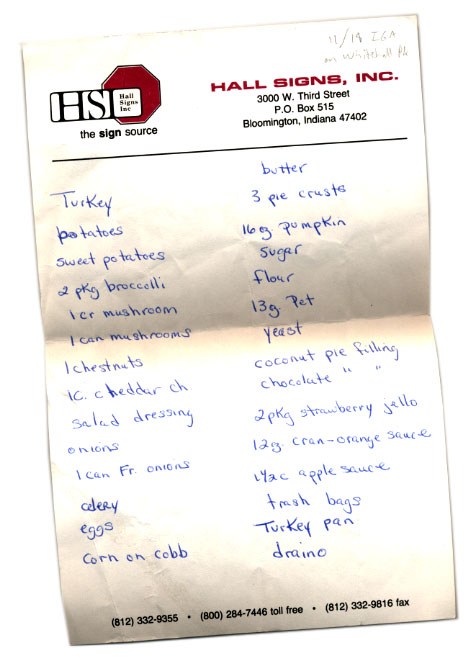 12/18 IGA
on Whitehall Pk
HSI
Hall
Signs
Inc
the sign source
HALL SIGNS, INC.
3000 W. Third Street
P.O. Box 515
Bloomington, Indiana 47402
Turkey
potatoes
sweet potatoes
2 pkg broccolli
1 cr mushroom
1 can mushrooms
1 chestnuts
1c. cheddar ch
salad dressing
onions
1 can Fr. onions
celery
eggs
corn on cobb
butter
3 pie crusts
16 oz pumpkin
sugar
flour
13 oz. Pet
yeast
coconut pie filling
chocolate " "
2 pkg strawberry jello
12 oz. cran-orange sauce
1 1/2 c apple sauce
trash bags
Turkey pan
draino
(812) 332-9355 • (800) 284-7446 toll free • (812) 332-9816 fax